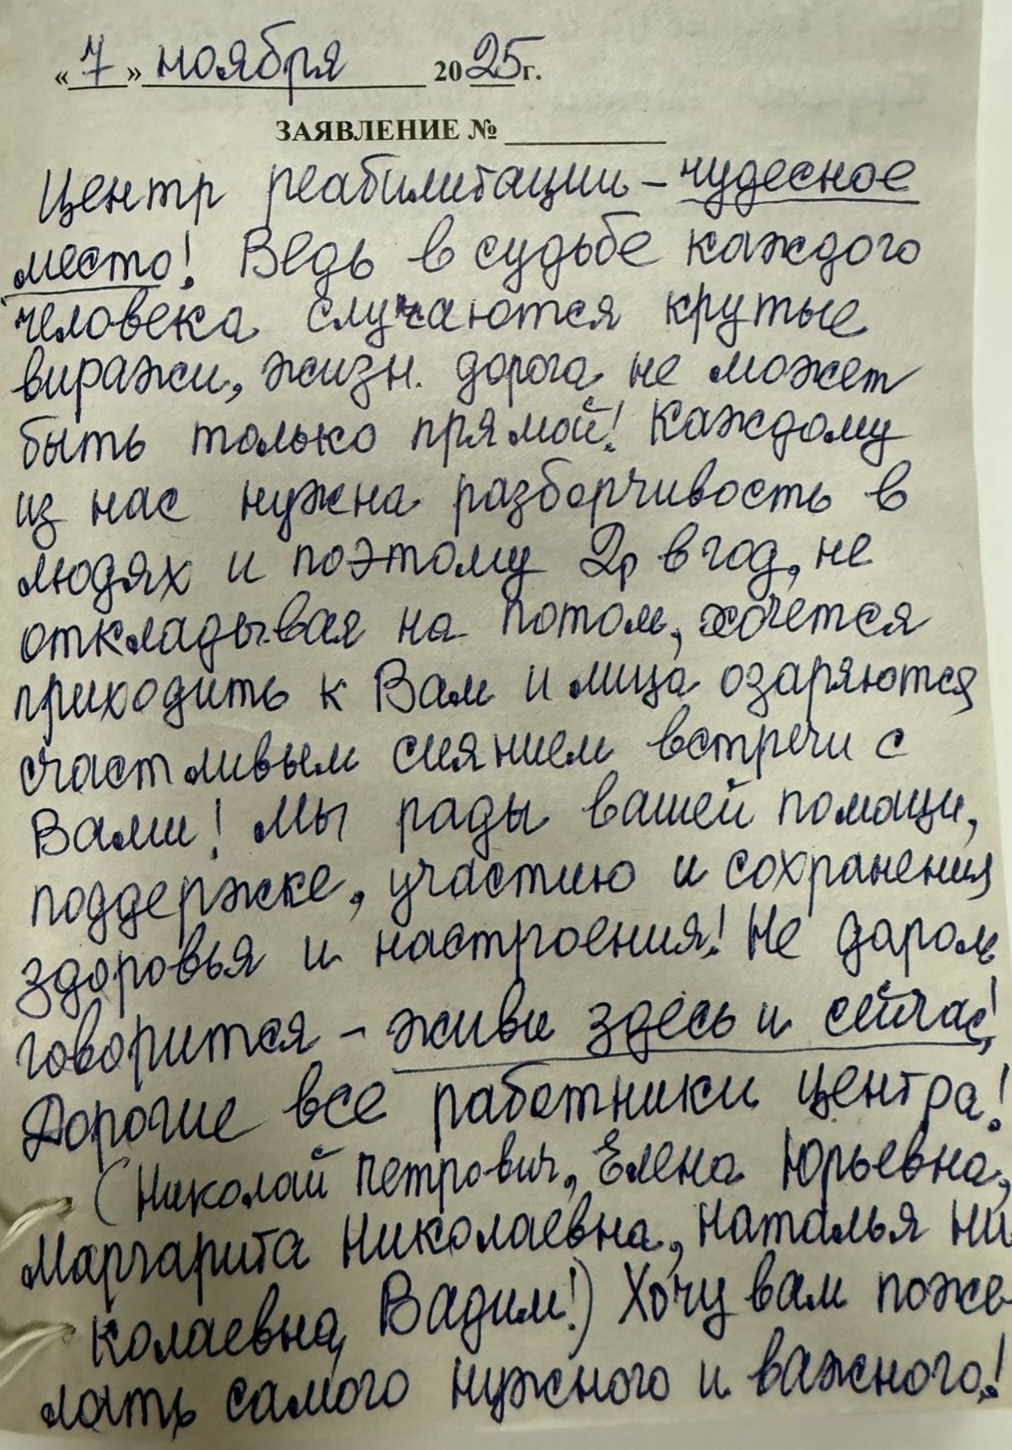 «7» ноября 2025г.
ЗАЯВЛЕНИЕ № ________
Центр реабилитации – чудесное
место! Ведь в судьбе каждого
человека случаются крутые
виражи, жизн. дорога не может
быть только прямой! Каждому
из нас нужна разборчивость в
людях и поэтому 2р в год, не
откладывая на потом, хочется
приходить к Вам и лица озаряются
счастливым сиянием встречи с
Вами! Мы рады вашей помощи,
поддержке, участию и сохранения
здоровья и настроения! Не даром
говорится – живи здесь и сейчас!
Дорогие все работники центра!
(Николай Петрович, Елена Юрьевна,
Маргарита Николаевна, Наталья Ни
колаевна, Вадим!) Хочу вам поже-
лать самого нужного и важного!